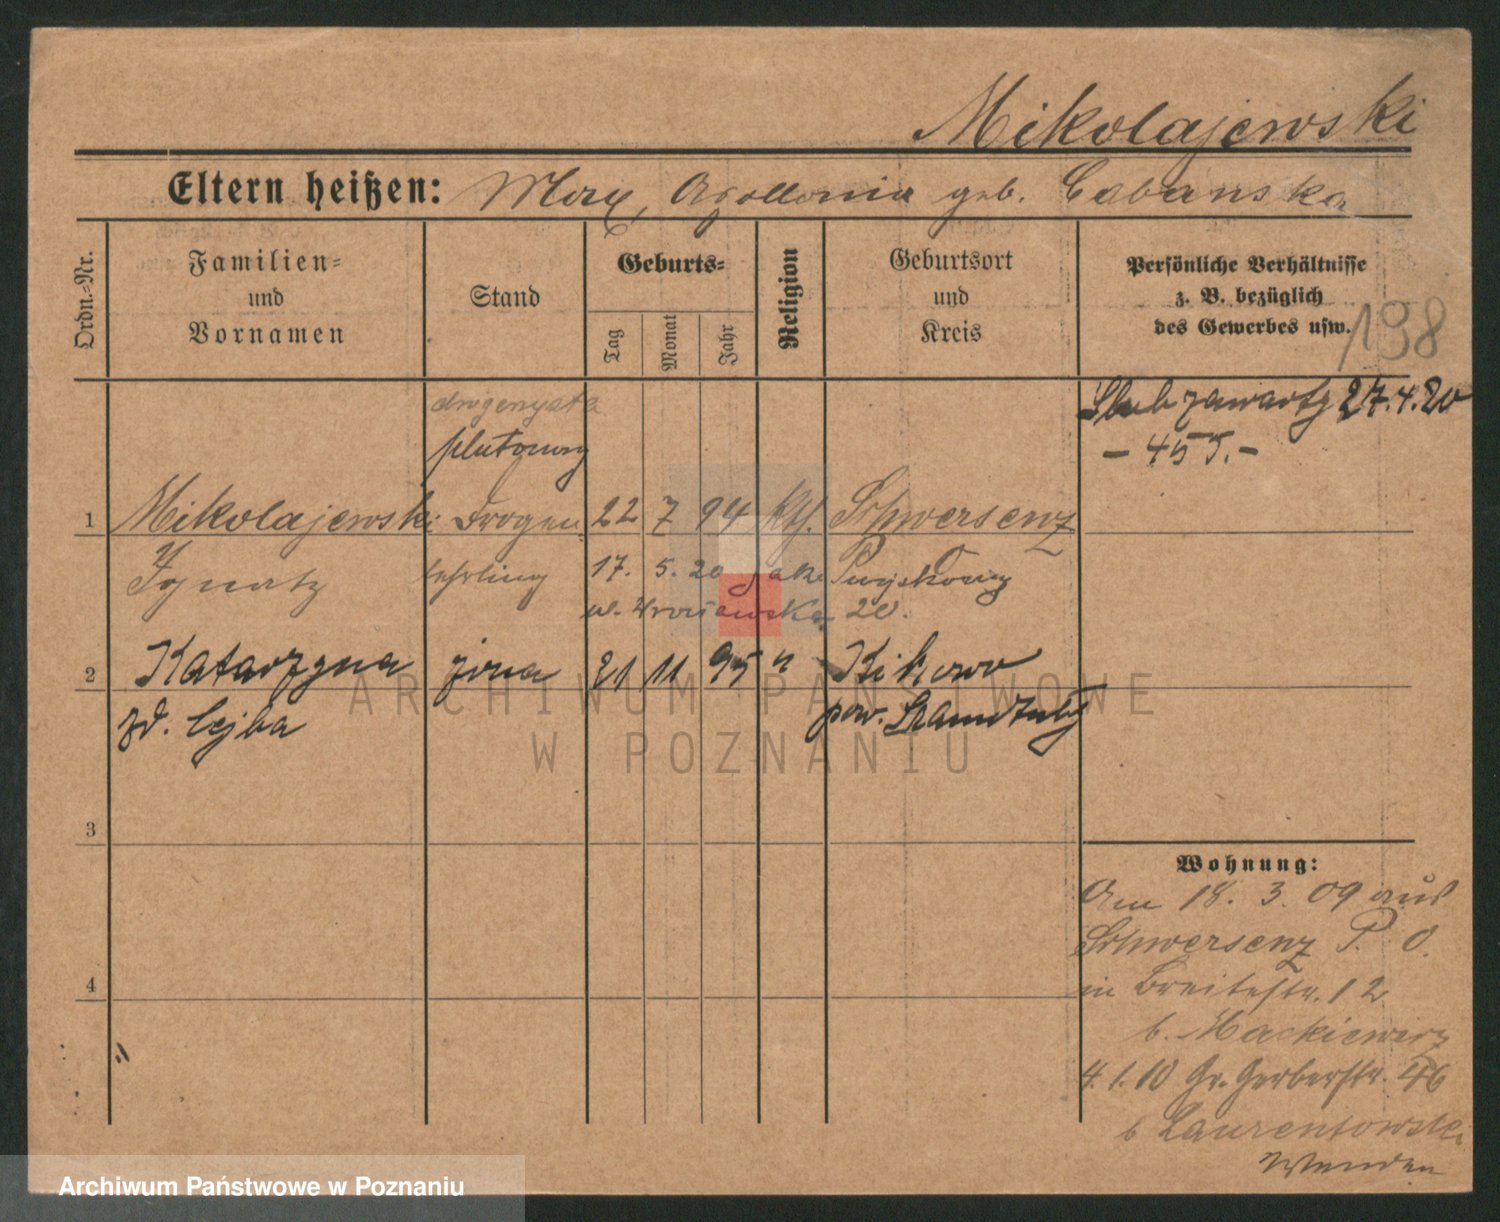 Mikolajewski
Eltern heißen: Max, Apollonia geb. Cabanska
Ordn.-Nr.
Familien-
und
Vornamen
Stand
Geburts-
Tag
Monat
Jahr
Religion
Geburtsort
und
Kreis
Persönliche Verhältnisse
z. B. bezüglich
des Gewerbes usw.
198
drogerzysta
plutonowy
Ślub zawarty 27.4.20
- 455.-
1 Mikolajewski Drogen 22 7 94 kth. Schwersenz
Ignatz lehrling 17. 5. 20
ul. Wrocławska 20.
2 Katarzyna żona 21 11 95 " Kikowo
zd. Cejba pow. Szamotuły
3
4
Wohnung:
Am 18. 3. 09 aus
Schwersenz P. O.
in Breitestr. 12
b. Mackiewicz
4.1.10 Gr. Gerberstr. 46
b Laurentowski
ARCHIWUM PAŃSTWOWE
W POZNANIU
Archiwum Państwowe w Poznaniu